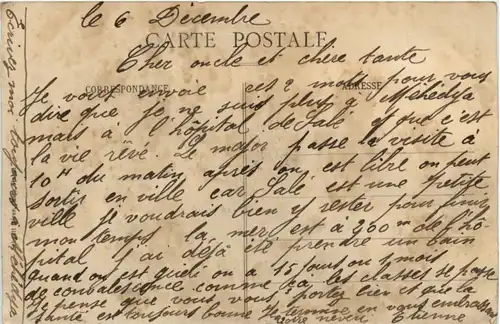 le 6 Décembre
CARTE POSTALE
Cher oncle et chère tante
CORRESPONDANCE
ADRESSE
Je vous envoie ces 2 mots pour vous
dire que je ne suis plus à Méhédya
mais à l'hôpital de Salé et que c'est
la vie rêvé. Le major passe la visite à
10 H du matin après on est libre on peut
sortir en ville car Salé est une petite
ville je voudrais bien y rester pour finir
mon temps la mer est à 200 m de l'hô-
pital j'ai déjà été prendre un bain
quand on est guéri on a 15 jours ou 1 mois
de convalescence comme ça les classes se passe
je pense que vous vous portez bien et que la
santé est toujours bonne Je termine en vous embrassant
votre neveu Etienne
Ecrivez moi toujours à Méhédya